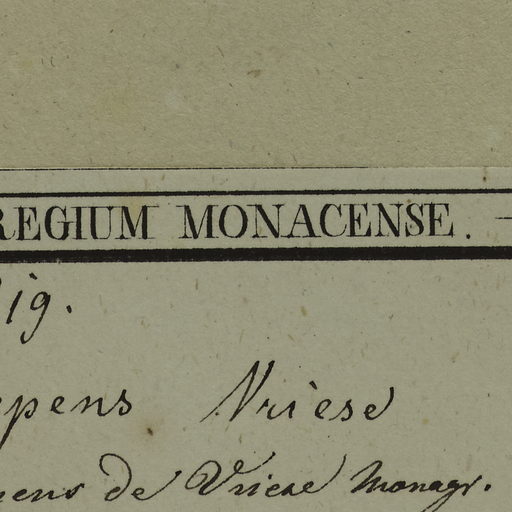 REGIUM MONACENSE.
ig.
pens Vriese
ens de Vriese Monogr.